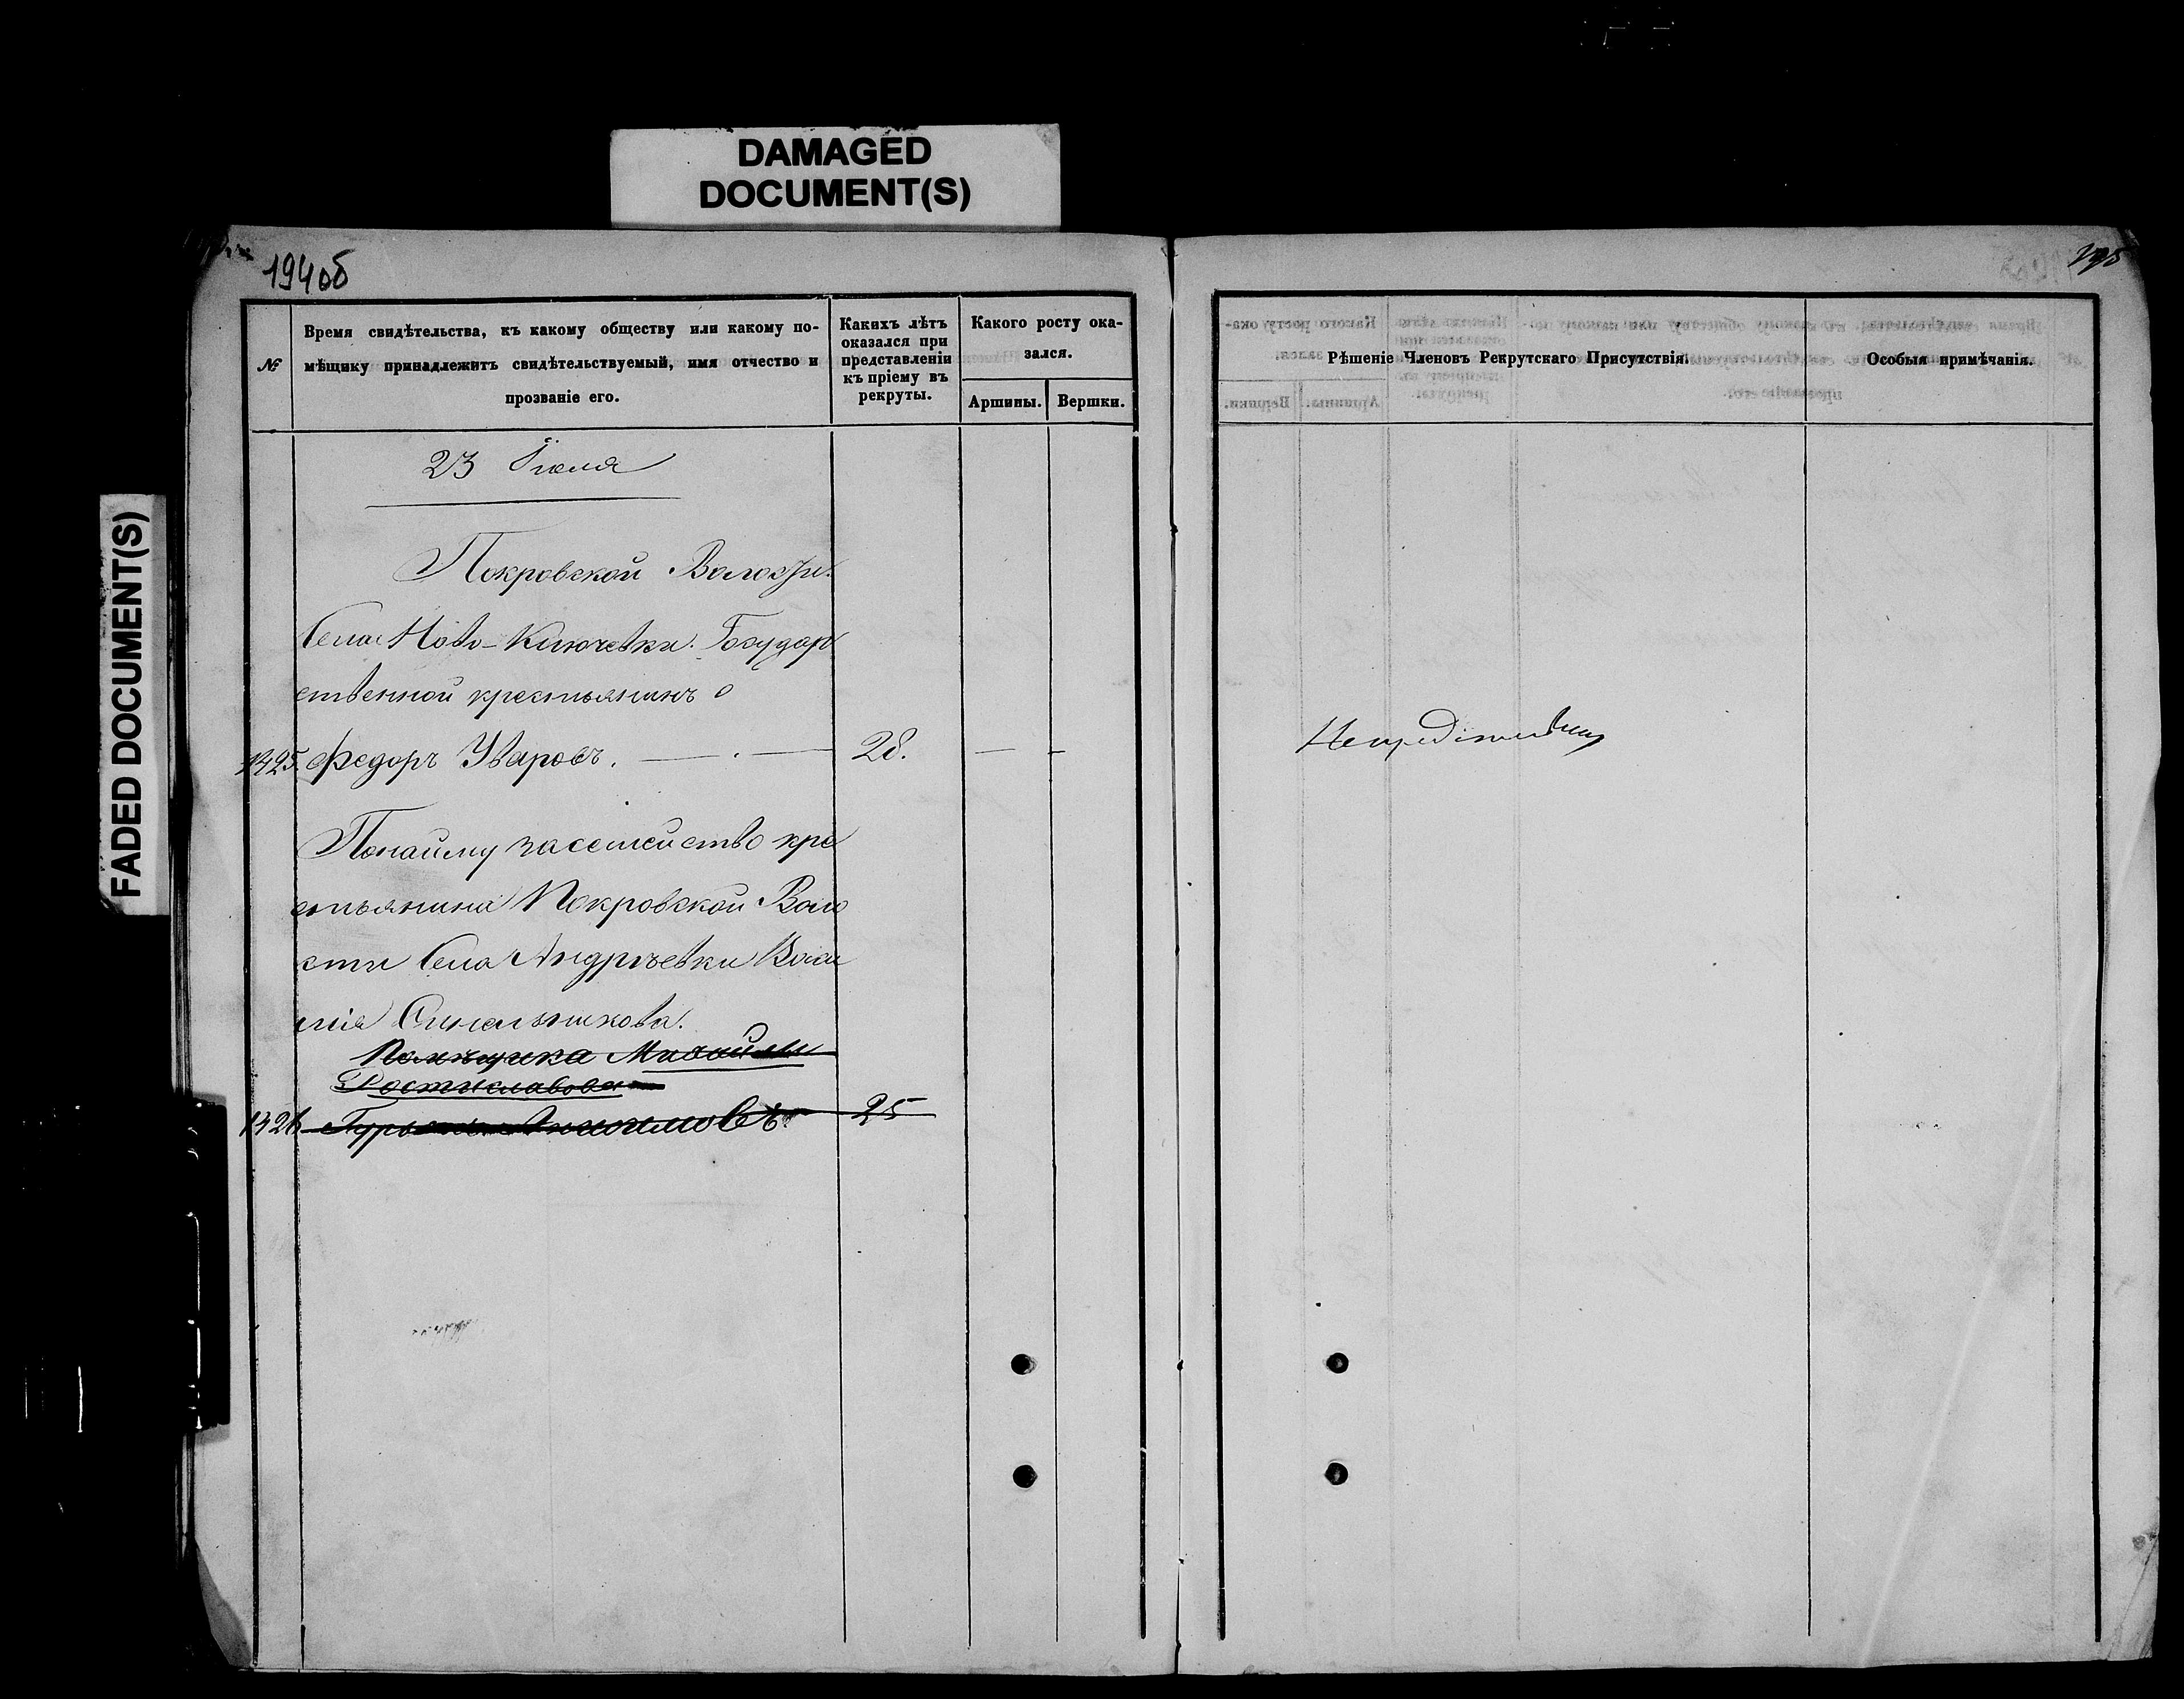 DAMAGED
DOCUMENT(S)
FADED DOCUMENT(S)
194об
№
Время свидѣтельства, къ какому обществу или какому по-
мѣщику принадлежитъ свидѣтельствуемый, имя отчество и
прозваніе его.
Какихъ лѣтъ
оказался при
представленіи
къ пріему въ
рекруты.
Какого росту ока-
зался.
Аршины.
Вершки.
23 Іюля
Покровской Волости.
Села Ново-Ключевки. Государ
ственной крестьянинъ
1425. Федоръ Уваровъ. 28.
Понайму засемейство кре
стьянина Покровской Воло
сти Села Андрѣевки Васи
лія Синельникова.
Помѣщика Михайлы
Ростиславова
1426 25
195
Рѣшеніе Членовъ Рекрутскаго Присутствія.
Особыя примѣчанія.